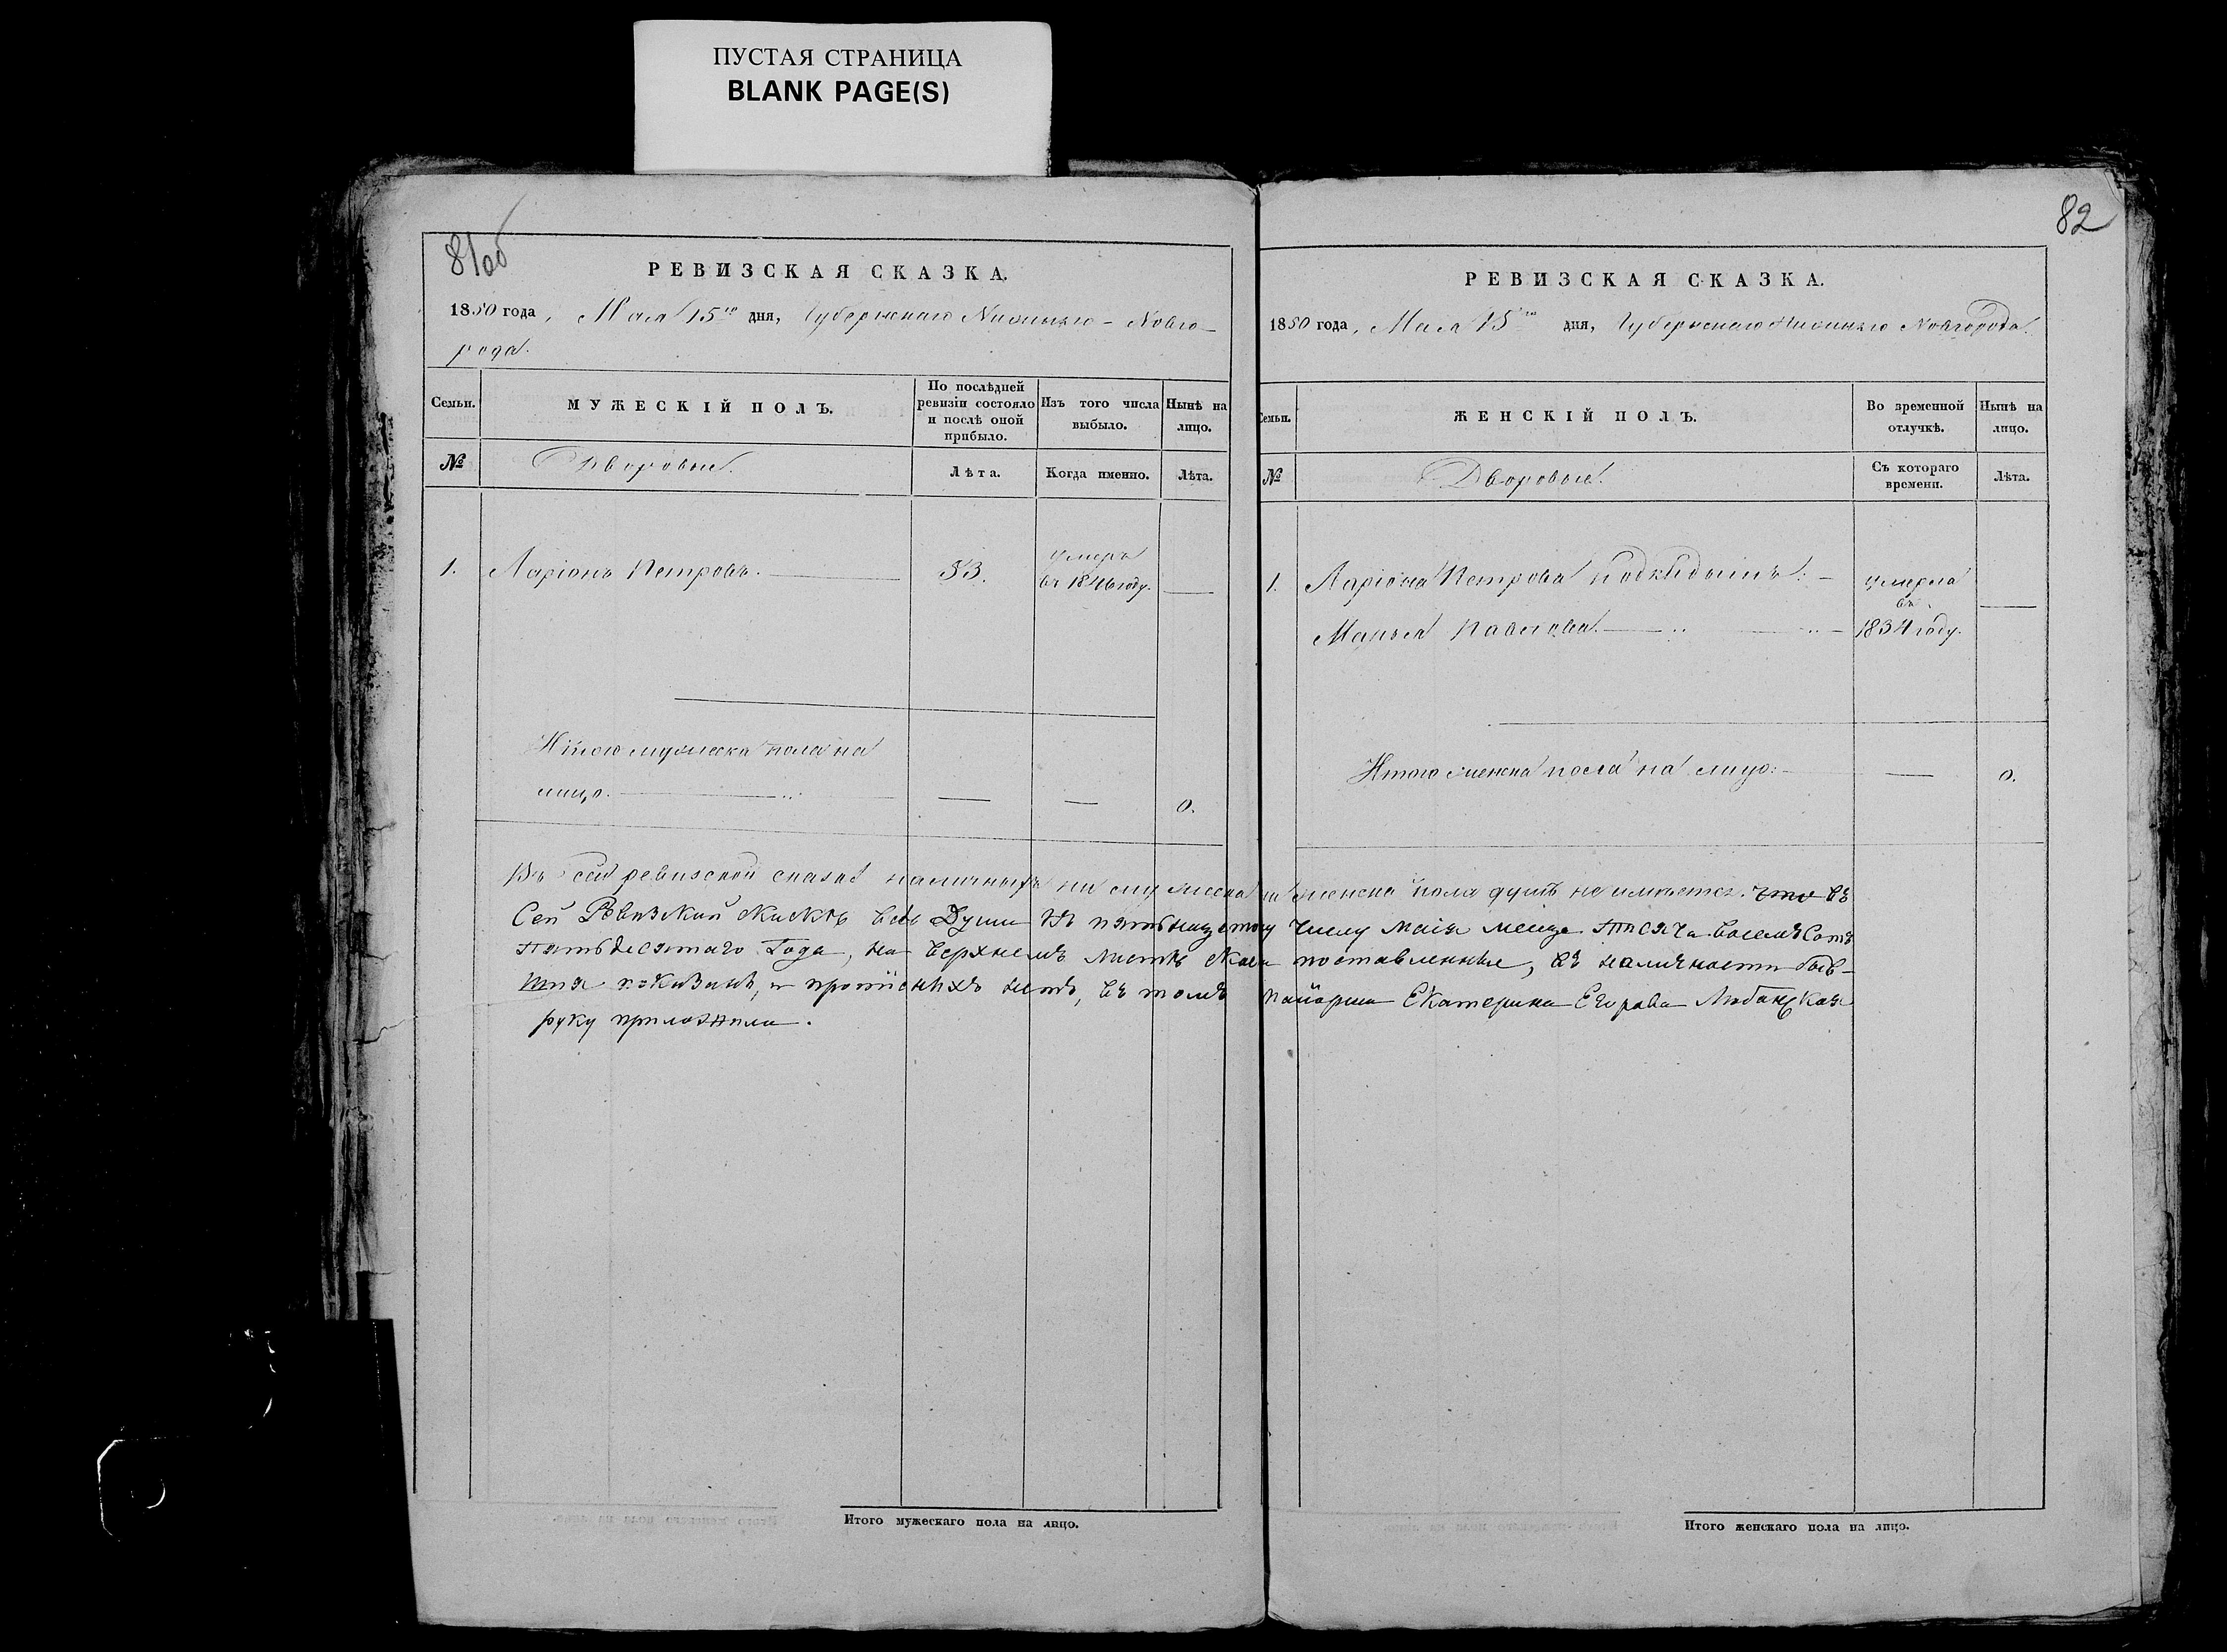 ПУСТАЯ СТРАНИЦА
BLANK PAGE(S)
81об
РЕВИЗСКАЯ СКАЗКА.
1850 года, Мая 15го дня, Губернскаго Нижняго-Новго-
рода.
Семьи.
МУЖЕСКІЙ ПОЛЪ.
По послѣдней ревизіи состояло и послѣ оной прибыло.
Изъ того числа выбыло.
Нынѣ на лицо.
№
Дворовые.
Лѣта.
Когда именно.
Лѣта.
1. Ларіонъ Петровъ. 53. умеръ въ 1846 году.
Итого мужеска пола на
лицо. 0.
82
РЕВИЗСКАЯ СКАЗКА.
1850 года, Мая 15го дня, Губернскаго Нижняго Новгорода.
Семьи.
ЖЕНСКІЙ ПОЛЪ.
Во временной отлучкѣ.
Нынѣ на лицо.
№
Дворовые.
Съ котораго времени.
Лѣта.
1. Ларіона Петрова подкидышъ: умерла
въ
Марья Павлова. 1834 году.
Итого женска пола на лицо: 0.
Въ сей ревизской сказкѣ наличныхъ ни мужеска ни женска пола душъ не имѣется. что въ
Сей Ревизской Скаскѣ всѣ Души къ пятьнацетому числу Маія месяца тысяча восемъ Сотъ
пятьдесятаго Года, на верхнемъ листѣ поставленные, въ наличности быв-
шия показанѣ, и нетъ, въ томъ маіорша Екатерина Егорова
руку приложила.
Итого мужескаго пола на лицо.
Итого женскаго пола на лицо.